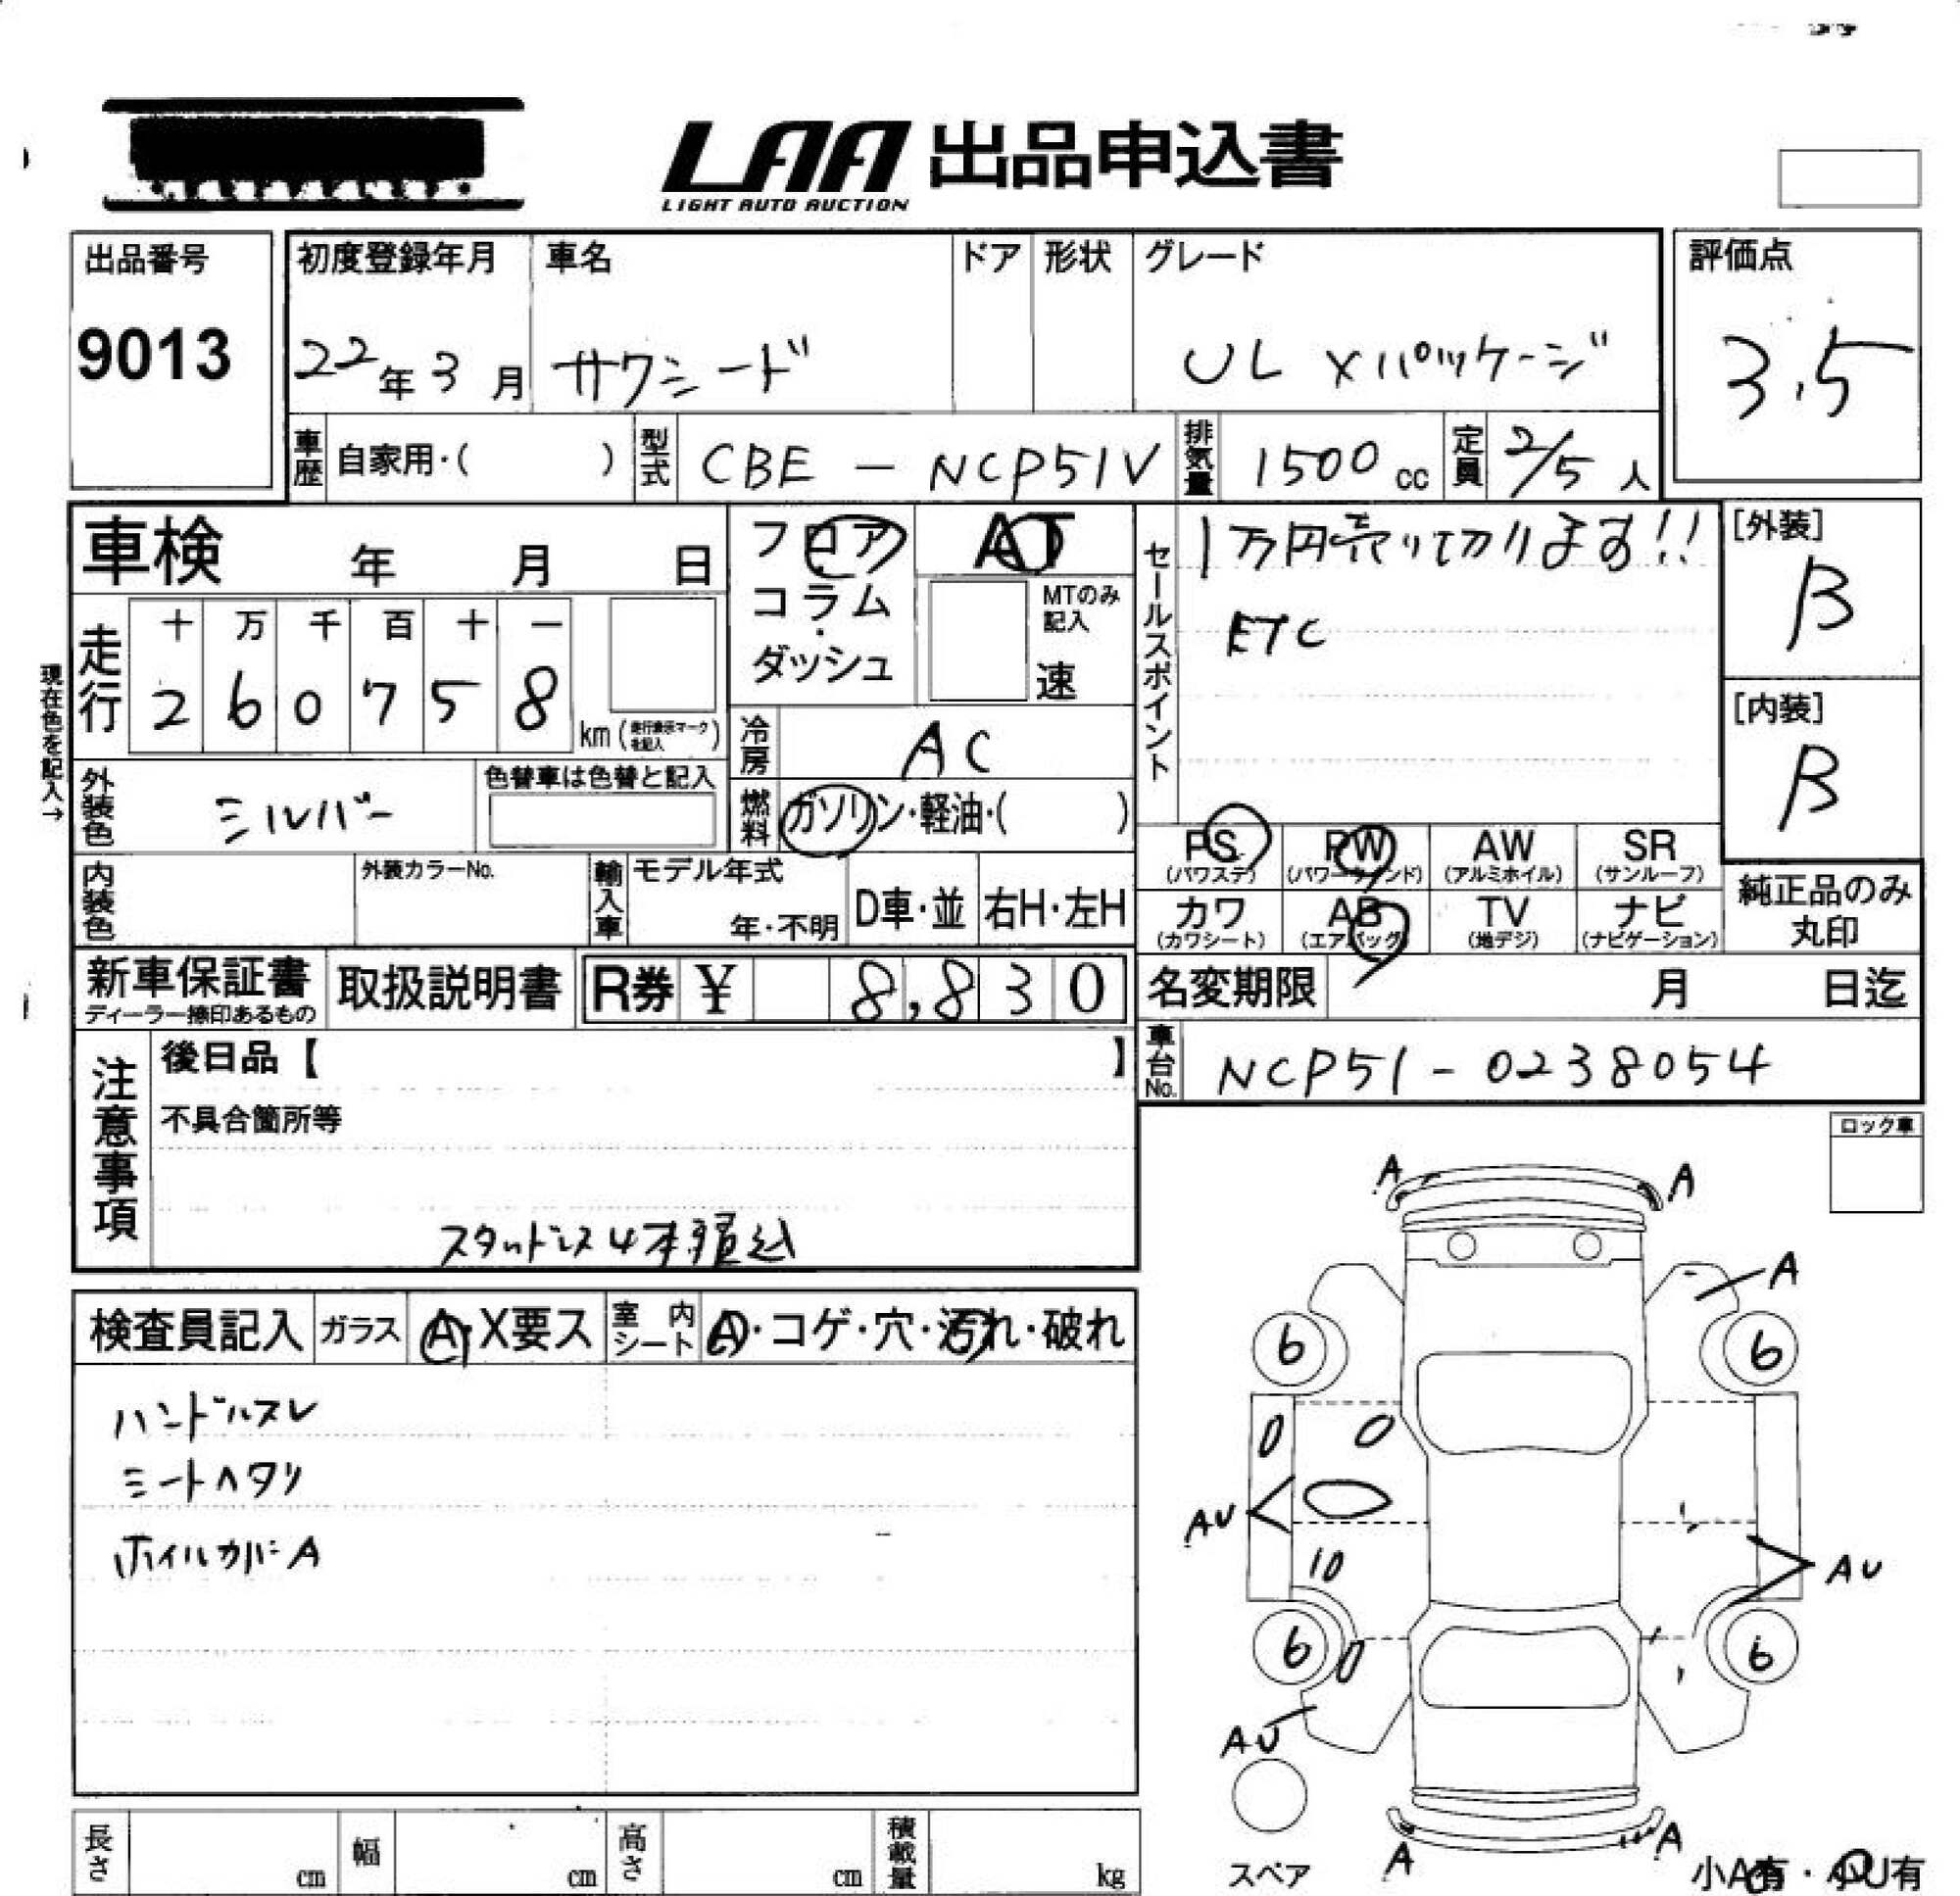 LAA 出品申込書
LIGHT AUTO AUCTION
出品番号
9013
初度登録年月
22年3月
車名
サクシード
ドア
形状
グレード
UL Xパッケージ
評価点
3.5
車歴 自家用・( )
型式 CBE - NCP51V
排気量 1500 cc
定員 2/5 人
車検 年 月 日
フロア
コラム
ダッシュ
AT
MTのみ記入
速
セールスポイント
1万円売り切ります!!
ETC
[外装]
B
[内装]
B
現在色を記入→
走行
十 万 千 百 十 一
2 6 0 7 5 8 km (走行表示マークを記入)
冷房 AC
燃料 ガソリン・軽油・( )
外装色 シルバー
色替車は色替と記入
内装色
外装カラーNo.
輸入車
モデル年式
年・不明
D車・並
右H・左H
PS (パワステ)
PW (パワーウィンド)
AW (アルミホイル)
SR (サンルーフ)
カワ (カワシート)
AB (エアバッグ)
TV (地デジ)
ナビ (ナビゲーション)
純正品のみ
丸印
新車保証書
ディーラー捺印あるもの
取扱説明書
R券 ¥ 8,830
名変期限 月 日迄
車台No. NCP51-0238054
注意事項
後日品【 】
不具合箇所等
スタッドレス4本積込
ロック車
検査員記入
ガラス A・X要ス
室内シート A・コゲ・穴・汚れ・破れ
ハンドルスレ
シートヘタリ
ホイルカバーA
A A
A
6 6
AU
10
AU
6 6
AU
A A
スペア
小A有・小U有
長さ cm
幅 cm
高さ cm
積載量 kg